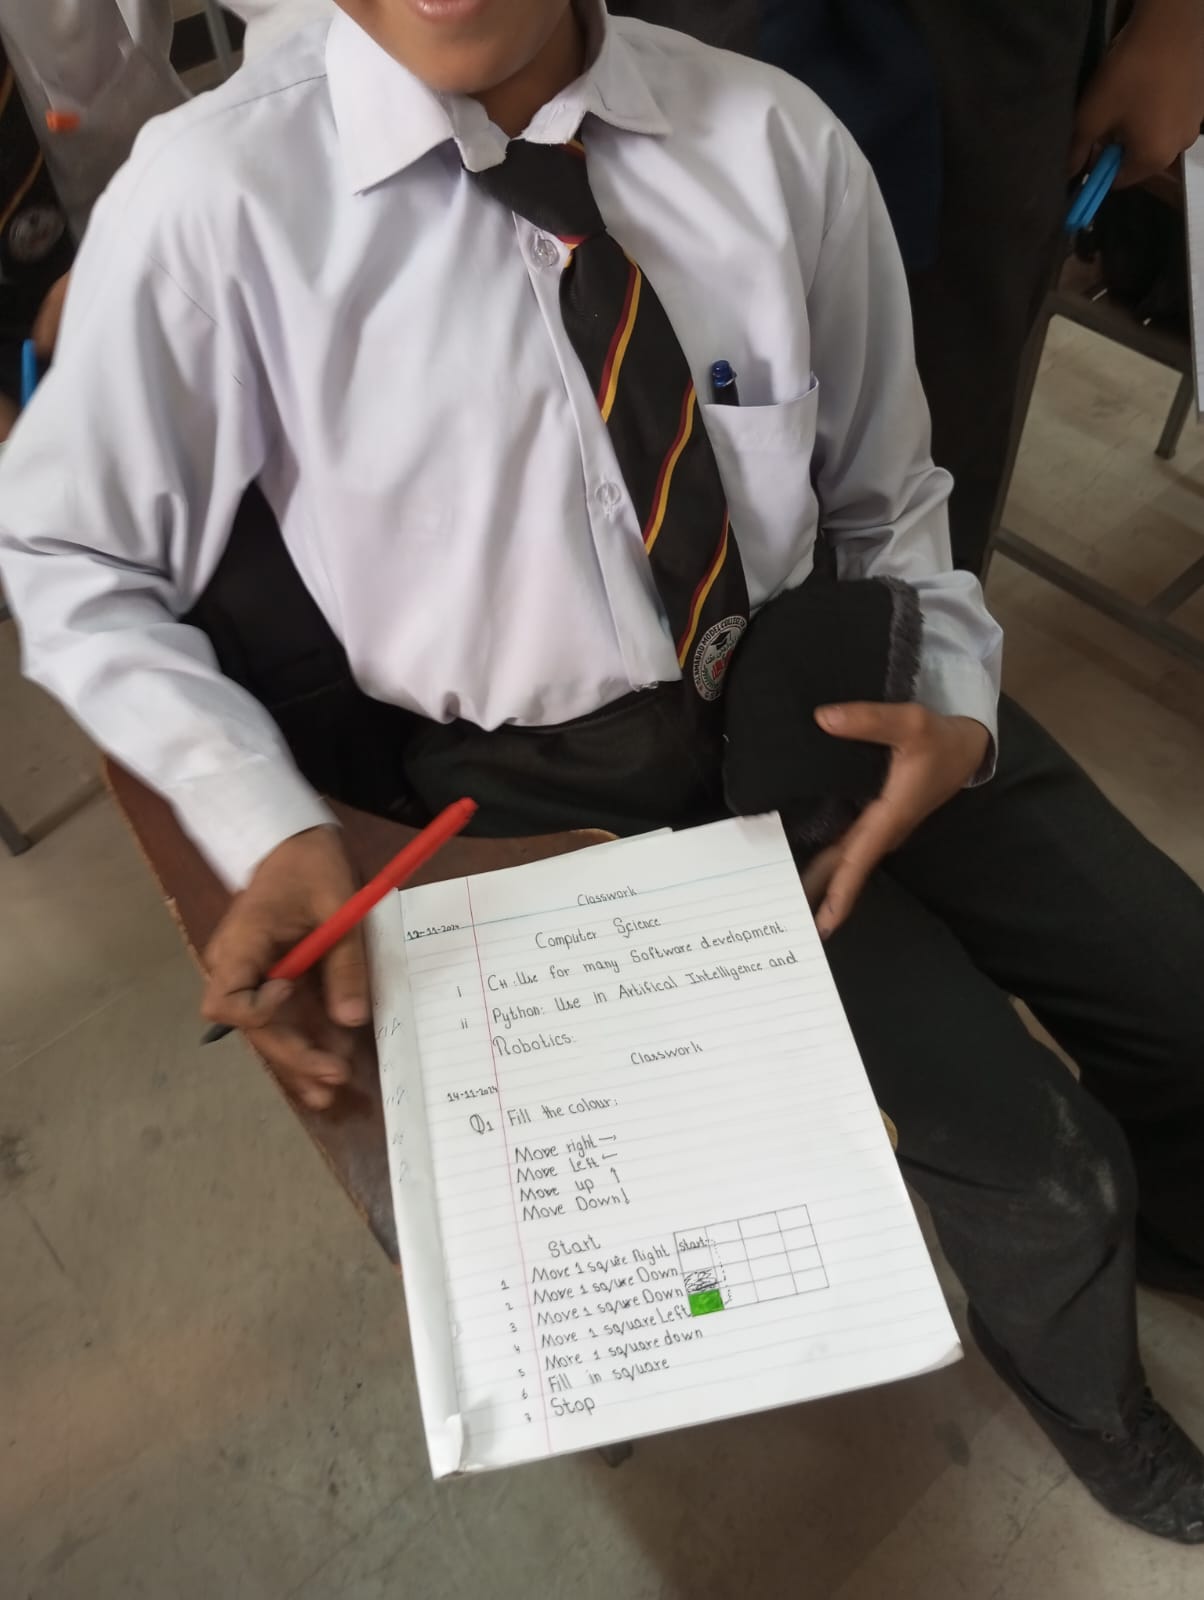 Classwork
12-11-2024
Computer Science
i C++: Use for many Software development.
ii Python: Use in Artifical Intelligence and
Robotics.
Classwork
14-11-2024
Q1 Fill the colour:
Move right →
Move Left ←
Move up ↑
Move Down ↓
Start
1 Move 1 squre Right
2 Move 1 squre Down
3 Move 1 squre Down
4 Move 1 square Left
5 More 1 square down
6 Fill in square
7 Stop
Start
ISLAMABAD MODEL COLLEGE